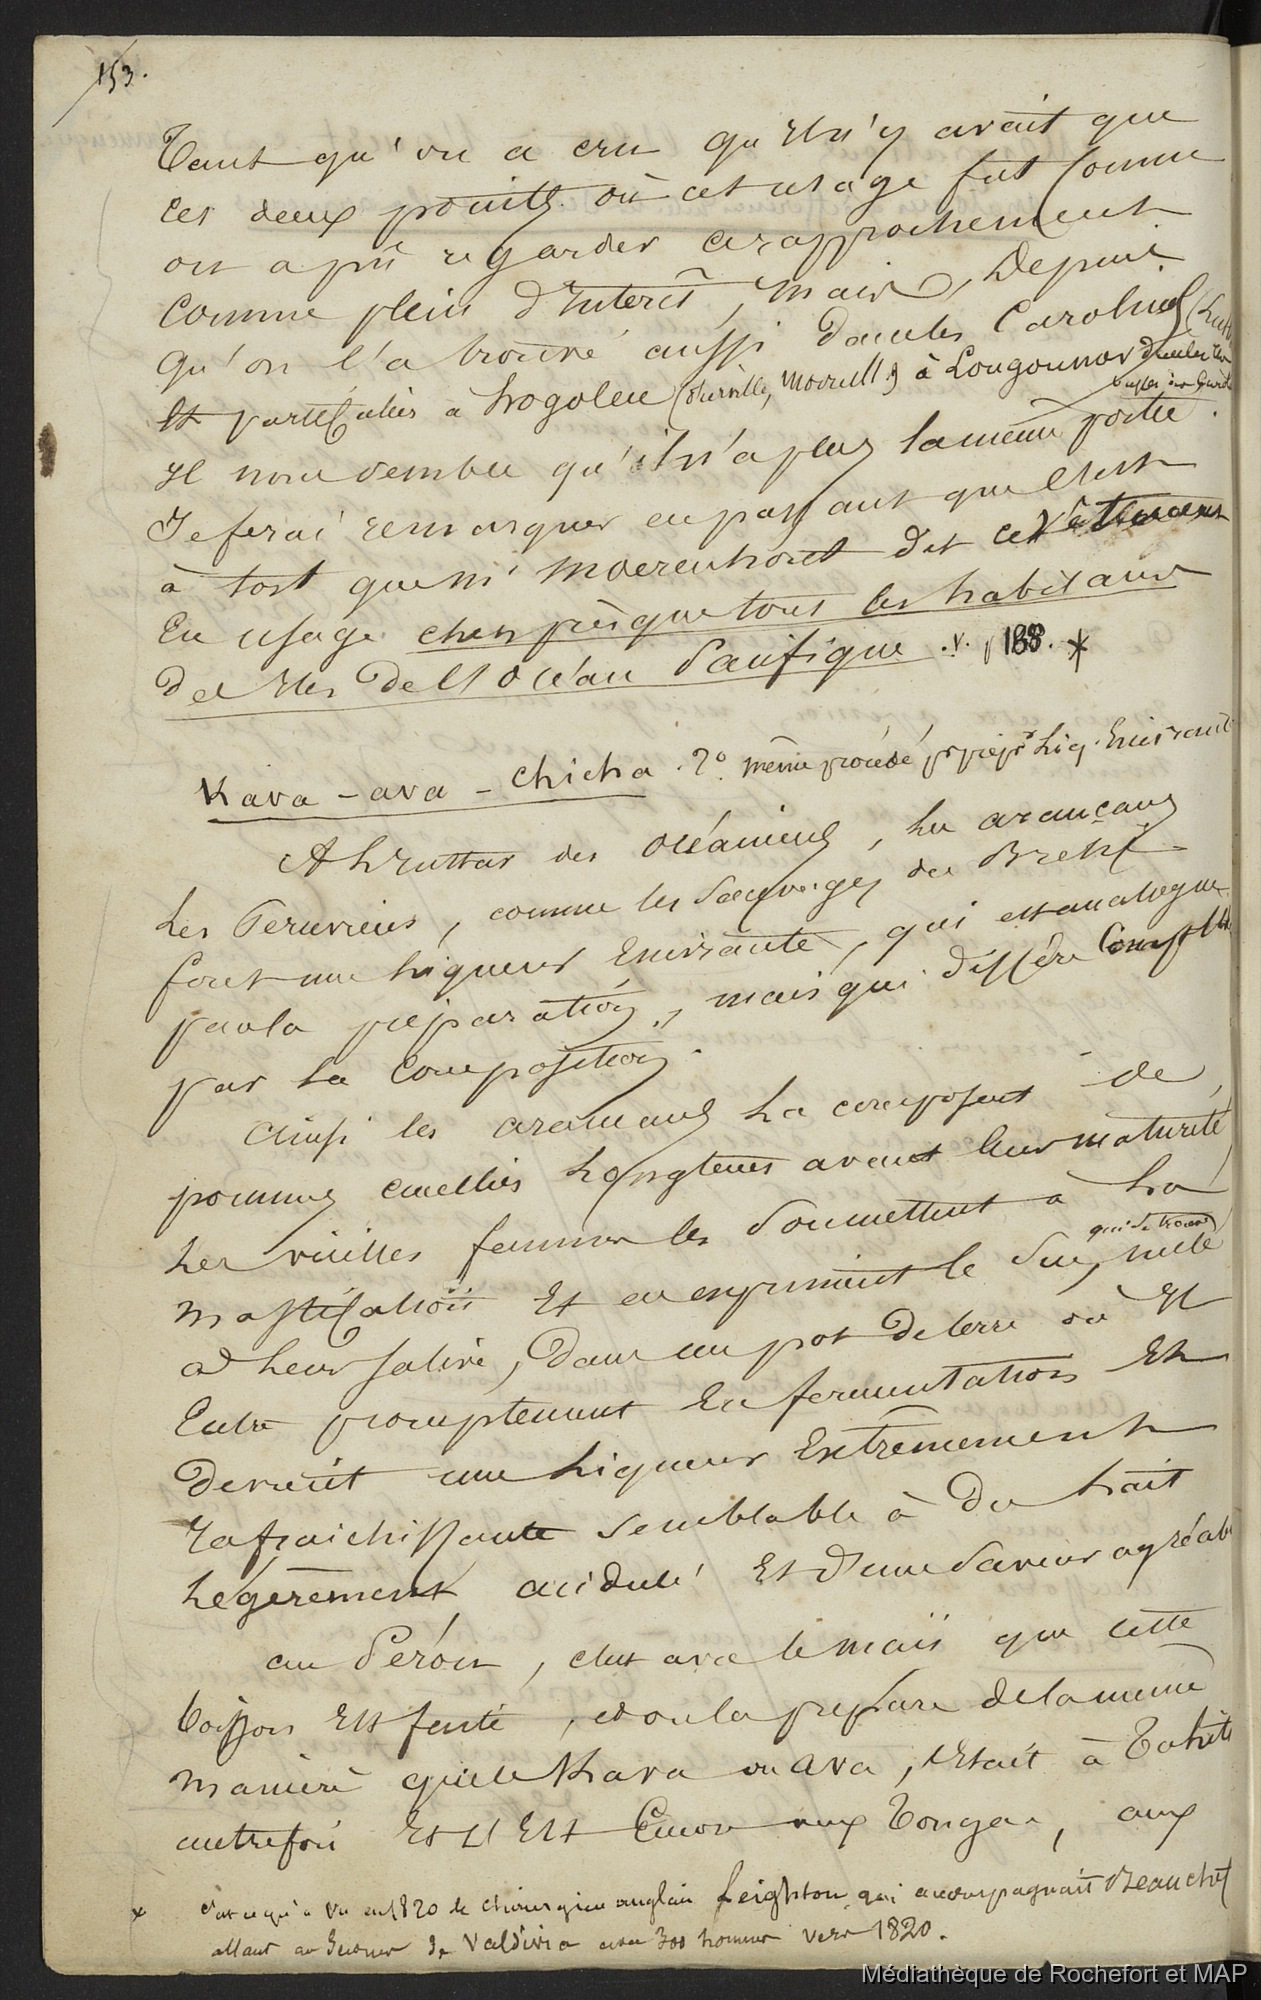 153.
Tant qu'on a cru qu'il n'y avait que
ces deux points où cet usage fut connu
on a pu regarder ce rapprochement
comme plein d'Intérêt, mais, Depuis
qu'on l'a trouvé aussi dans les Carolines
Et particulier à hogoleu (durville, Moerell.) à Lougounnor dans les
Il nous semble qu'il n'a plus la même portée.
Je ferai remarquer en passant que c'est
à tort que M. Moerenhout dit ces vêtemens
En usage chez presque tous les habitans
des Iles De l'Océan Pacifique. v. p 188. *
Kava - ava - Chicha. 2º même procédé pr prépr liq. Enivrante
A l'Instar des Océaniens, les araucans
les Peruviens, comme les Sauvages du Brésil
font une liqueur Enivrante, qui est analogue
par la préparation, mais qui diffère
par la Composition.
Ainsi les araucans la composent de
pommes cueillies longtems avant leur maturité
les vieilles femmes les Soumettent à la
mastication Et en expriment le Suc, qui se trouve mêlé
à leur salive, dans un pot de terre où Il
Entre promptement En fermentation Et
devient une liqueur Extrêmement
rafraichissante semblable à du lait
légèrement acidulé Et d'une saveur agréab
au Pérou, c'est avec le maïs que cette
boisson Est faite, et on la prépare de la même
manière que le Kava ou ava, l'Etait à Tahiti
autrefois Et l'Est Encore aux Tongas, aux
x c'est ce qu'a vu en 1820 le chirurgien anglais Leighton qui accompagnait Beauchef
allant au secours de Valdivia avec 300 hommes vers 1820.
Médiathèque de Rochefort et MAP